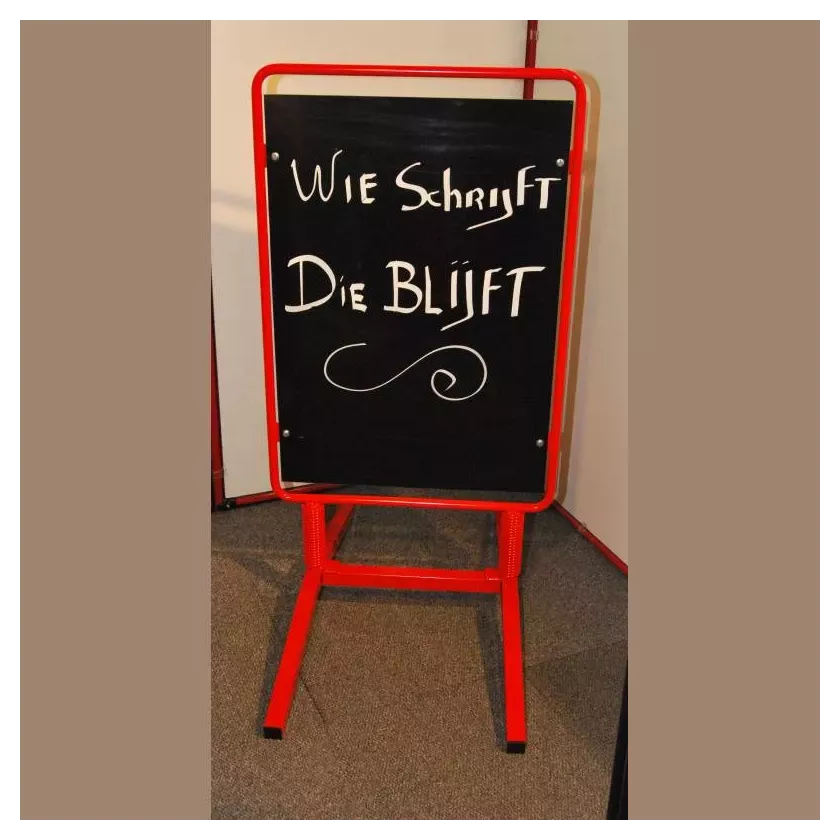 WIE SchRIJFT
DIE BLIJFT